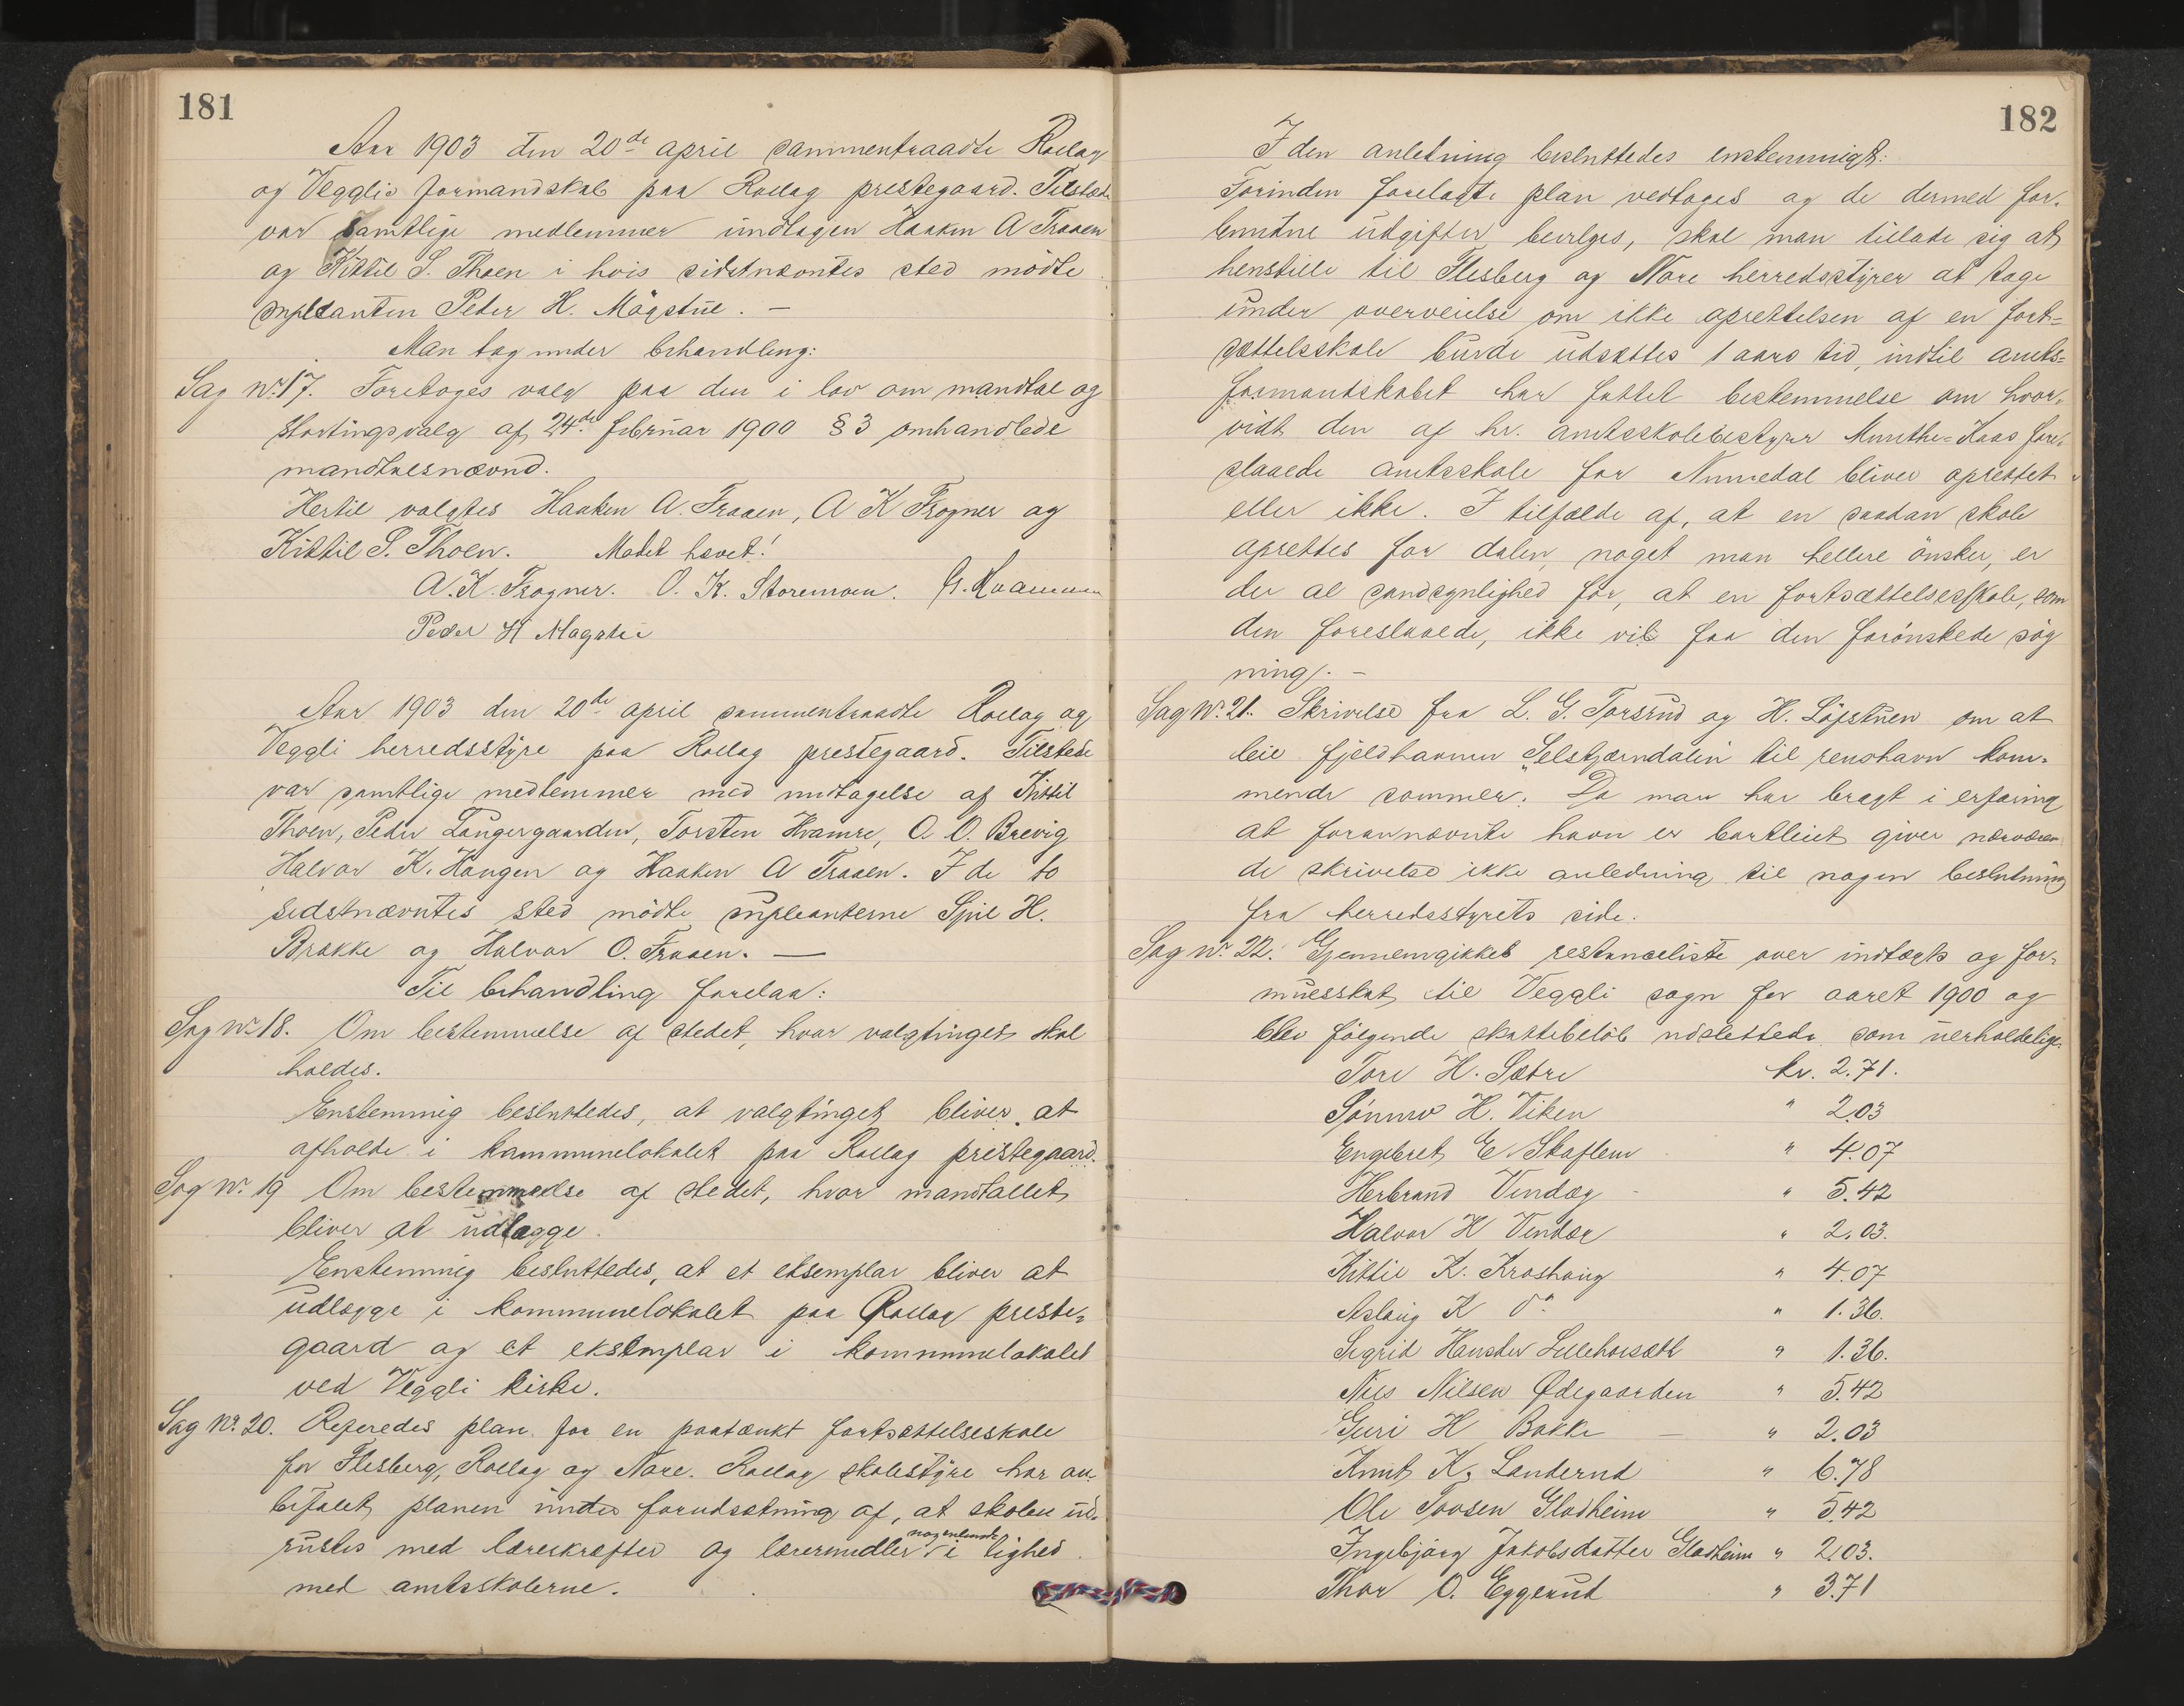 181
Aar 1903 den 20de april sammentraadte Rollag
og Vegglis formandskab paa Rollag prestegaard. Tilstede
var samtlige medlemmer undtagen Haaken A Traaen
og Kittil S. Thoen i hvis sidstnævntes sted mödte
supleanten Peder H. Mögstue. —
Man tog under behandling:
Sag No 17. Foretoges valg paa den i lov om mandtal og
stortingsvalg af 24de februar 1900 § 3 omhandlede
mandtalsnævnd.
Hertil valgtes Haaken A. Traaen, A K Frogner og
Kittil S. Thoen. Mödet hævet!
A. K. Frogner. O. K. Storemoen. G. Kvammen
Peder H Magstui
Aar 1903 den 20de april sammentraadte Rollag og
Veggli herredsstyre paa Rollag prestegaard. Tilstede
var samtlige medlemmer med undtagelse af Kittil
Thoen, Peder Laugergaarden, Torsten Hvamre, A O. Brevig
Halvor K. Haugen og Haaken A Traaen. I de to
sidstnævntes sted mödte supleanterne Spil H.
Brakke og Halvor O. Traaen. —
Til behandling forelaa:
Sag No 18. Om bestemmelse af stedet, hvor valgtinget skal
holdes.
Enstemmig besluttedes, at valgtinget bliver at
afholde i kommunelokalet paa Rollag prestegaard.
Sag No 19 Om bestemmelse af stedet, hvor mandtallet
bliver at udlægge.
Enstemmig besluttedes, at et eksemplar bliver at
udlægge i kommunelokalet paa Rollag preste-
gaard og et eksemplar i kommunelokalet
ved Veggli kirke.
Sag No 20. Refereredes plan for en paatænkt fortsættelsesskole
for Flesberg, Rollag og Nore. Rollag skolestyre har an-
befalet planen under forudsetning af, at skolen ud-
rustes med lærerkræfter og lærermidler nogenlunde i lighed
med amtsskolerne.
182
I den anledning besluttedes enstemmigt:
Forinden forelagte plan vedtoges og de dermed for-
bundne udgifter bevilges, skal man tillade sig at
henstille til Flesberg og Nore herredsstyrer at tage
under overveielse om ikke oprettelsen af en fort-
sættelsesskole burde udsættes 1 aars tid, indtil amts-
formandskabet har fattet bestemmelse om hvor-
vidt den af hr. amtsskolebestyrer Munthe-Kaas fore-
slaaede amtsskole for Numedal bliver oprettet
eller ikke. I tilfælde af, at en saadan skole
oprettes for dalen, noget man hellere önsker, er
der al sandsynlighed for, at en fortsættelsesskole, som
den foreslaaede, ikke vil faa den forönskede sög
ning. —
Sag No. 21. Skrivelse fra L. G. Torsrud og H. Löfstuen om at
leie fjeldhavnen "Selstjærndalen til renshavn kom-
mende sommer. Da man har bragt i erfaring
at forannævnte havn er bortleiet giver nærværen
de skrivelse ikke anledning til nogen beslutning
fra herredsstyrets side.
Sag No 22. Gjennemgikkes restanceliste over indtægts og for-
muesskat til Veggli sogn for aaret 1900 og
blev fölgende skattebelöb udslettede som uerholdelige:
Tore H. Sætre kr. 2.71.
Gunnar H. Viken " 2.03
Engebret E. Skaflem " 4.07
Herbrand Vindeg " 5.42
Halvor H Vindeg " 2.03.
Kittil K. Kroshaug " 4.07
Aslaug K do " 1.36.
Sigrid Hansdr Lillehorsæth " 1.36.
Nils Nilsen Ødegaarden " 5.42
Guri H Bakke — " 2.03
Knut K. Landerud " 6.78
Ole Tovsen Gladheim " 5.42
Ingebjörg Jakobsdatter Gladheim " 2.03.
Thor O. Eggerud " 3.71